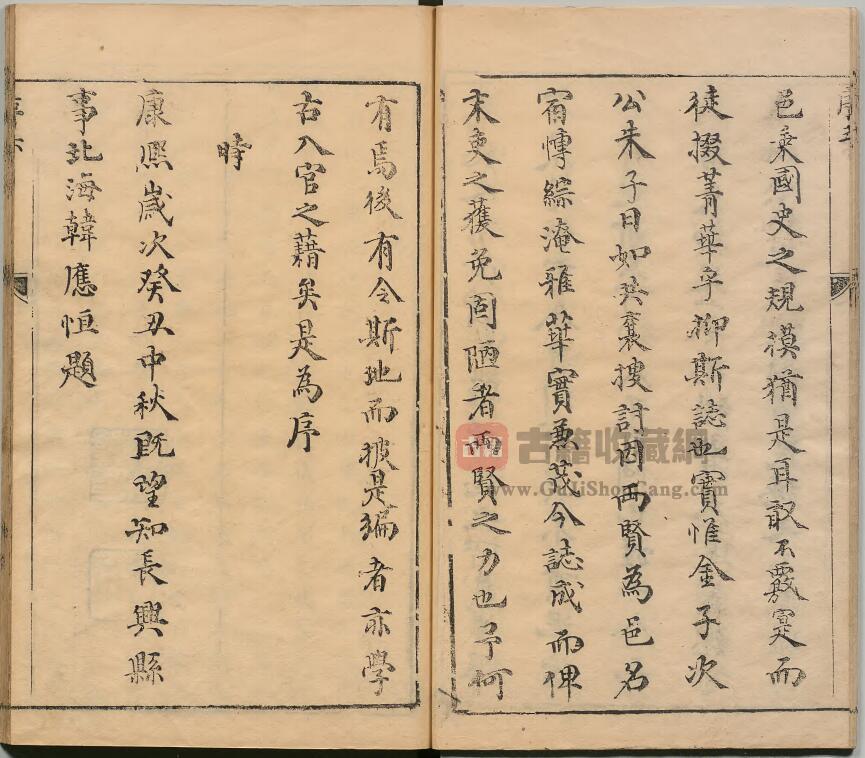 邑乘國史之規模猶是耳敢不覈寔而
徒掇菁華乎抑斯誌也實惟金子次
公朱子日如共裒搜討因兩賢為邑名
宿博綜淹雅華實兼茂今誌成而俾
末吏之獲免固陋者兩賢之力也予何
有焉後有令斯地而披是編者亦學
古入官之藉矣是為序
時
康熙歲次癸丑中秋既望知長興縣
事北海韓應恒題
古籍收藏網
www.GuJiShouCang.com